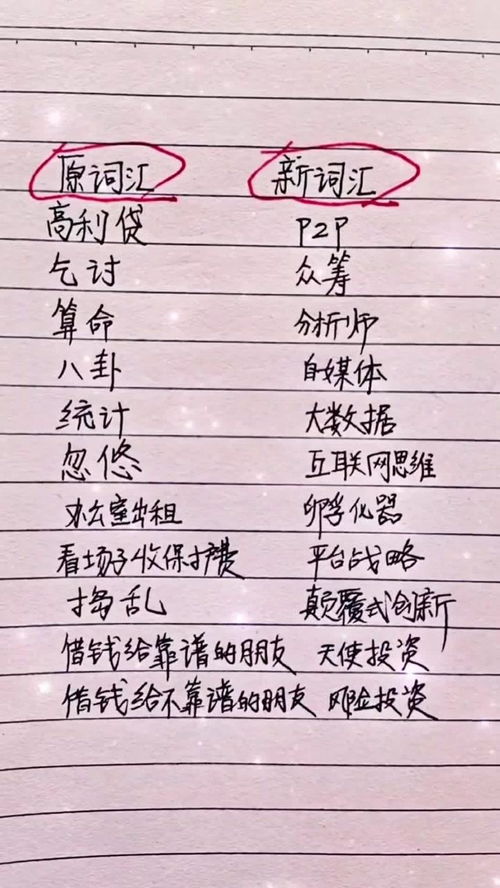 原词汇 新词汇
高利贷 P2P
乞讨 众筹
算命 分析师
八卦 自媒体
统计 大数据
忽悠 互联网思维
办公室出租 孵化器
看场子收保护费 平台战略
捣乱 颠覆式创新
借钱给靠谱的朋友 天使投资
借钱给不靠谱的朋友 风险投资